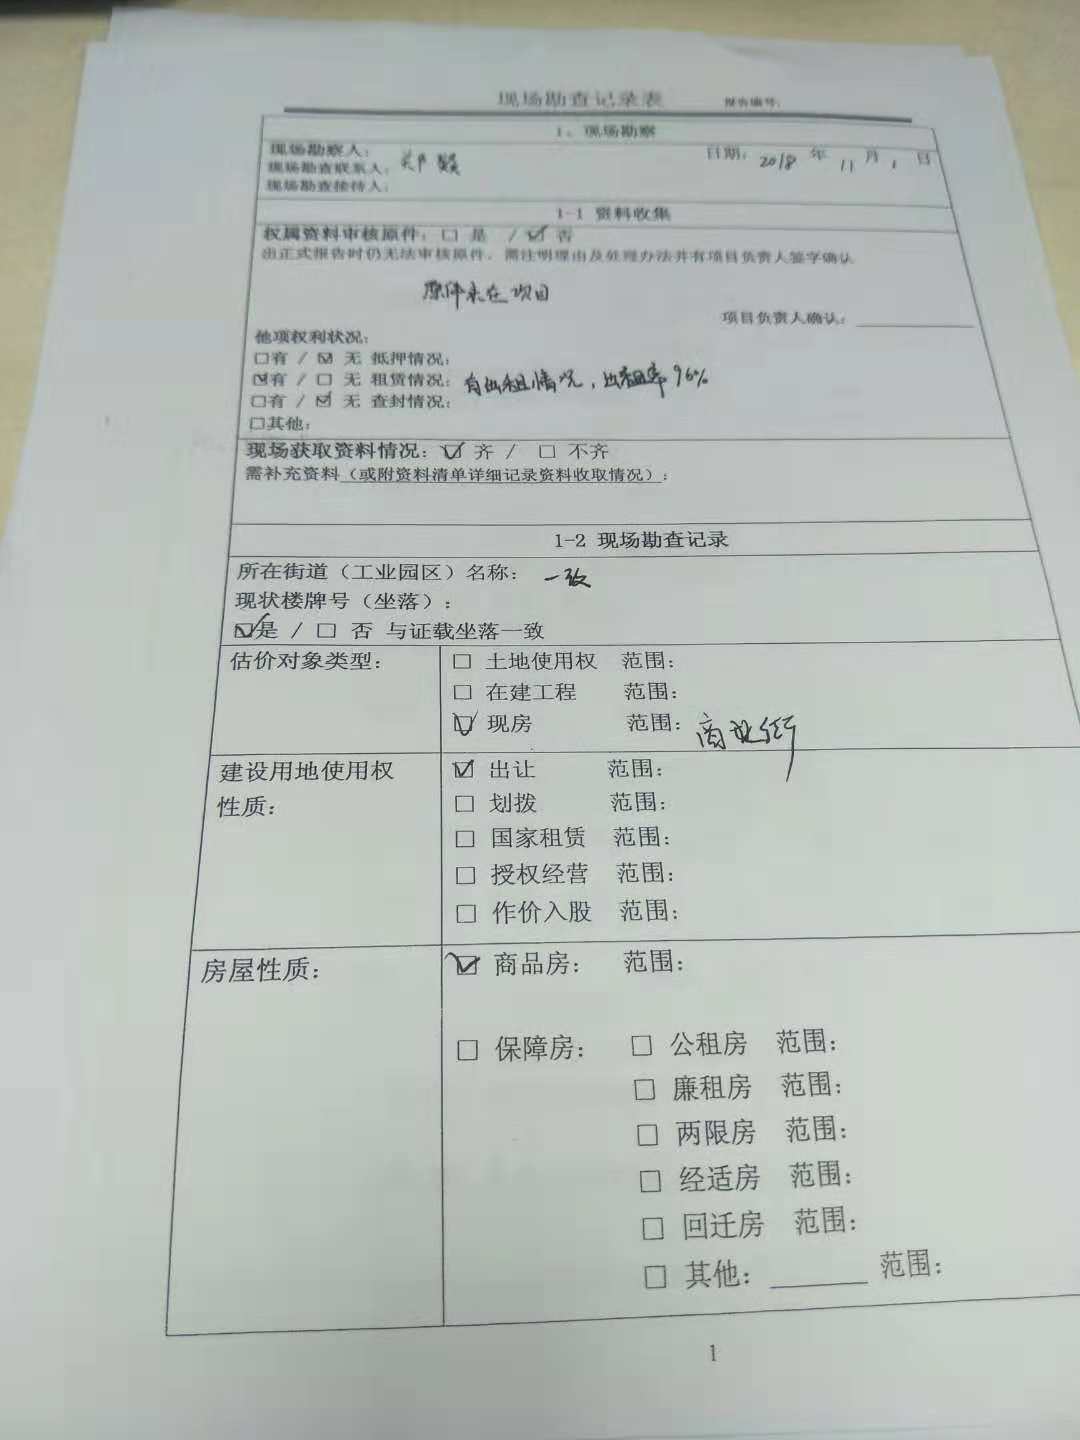 现场勘查记录表 报告编号：
1、现场勘察
现场勘察人： 日期：2018 年 11 月 1 日
现场勘查联系人：
现场勘查接待人：
1-1 资料收集
权属资料审核原件：□ 是 / ☑ 否
出正式报告时仍无法审核原件，需注明理由及处理办法并有项目负责人签字确认
原件未在项目
项目负责人确认：
他项权利状况：
□有 / ☑ 无 抵押情况：
☑有 / □ 无 租赁情况：有出租情况，出租率96%
□有 / ☑ 无 查封情况：
□其他：
现场获取资料情况：☑ 齐 / □ 不齐
需补充资料（或附资料清单详细记录资料收取情况）：
1-2 现场勘查记录
所在街道（工业园区）名称： 一致
现状楼牌号（坐落）：
☑是 / □ 否 与证载坐落一致
估价对象类型： □ 土地使用权 范围：
□ 在建工程 范围：
☑ 现房 范围：商业街
建设用地使用权 ☑ 出让 范围：
性质： □ 划拨 范围：
□ 国家租赁 范围：
□ 授权经营 范围：
□ 作价入股 范围：
房屋性质： ☑ 商品房： 范围：
□ 保障房： □ 公租房 范围：
□ 廉租房 范围：
□ 两限房 范围：
□ 经适房 范围：
□ 回迁房 范围：
□ 其他：______ 范围：
1